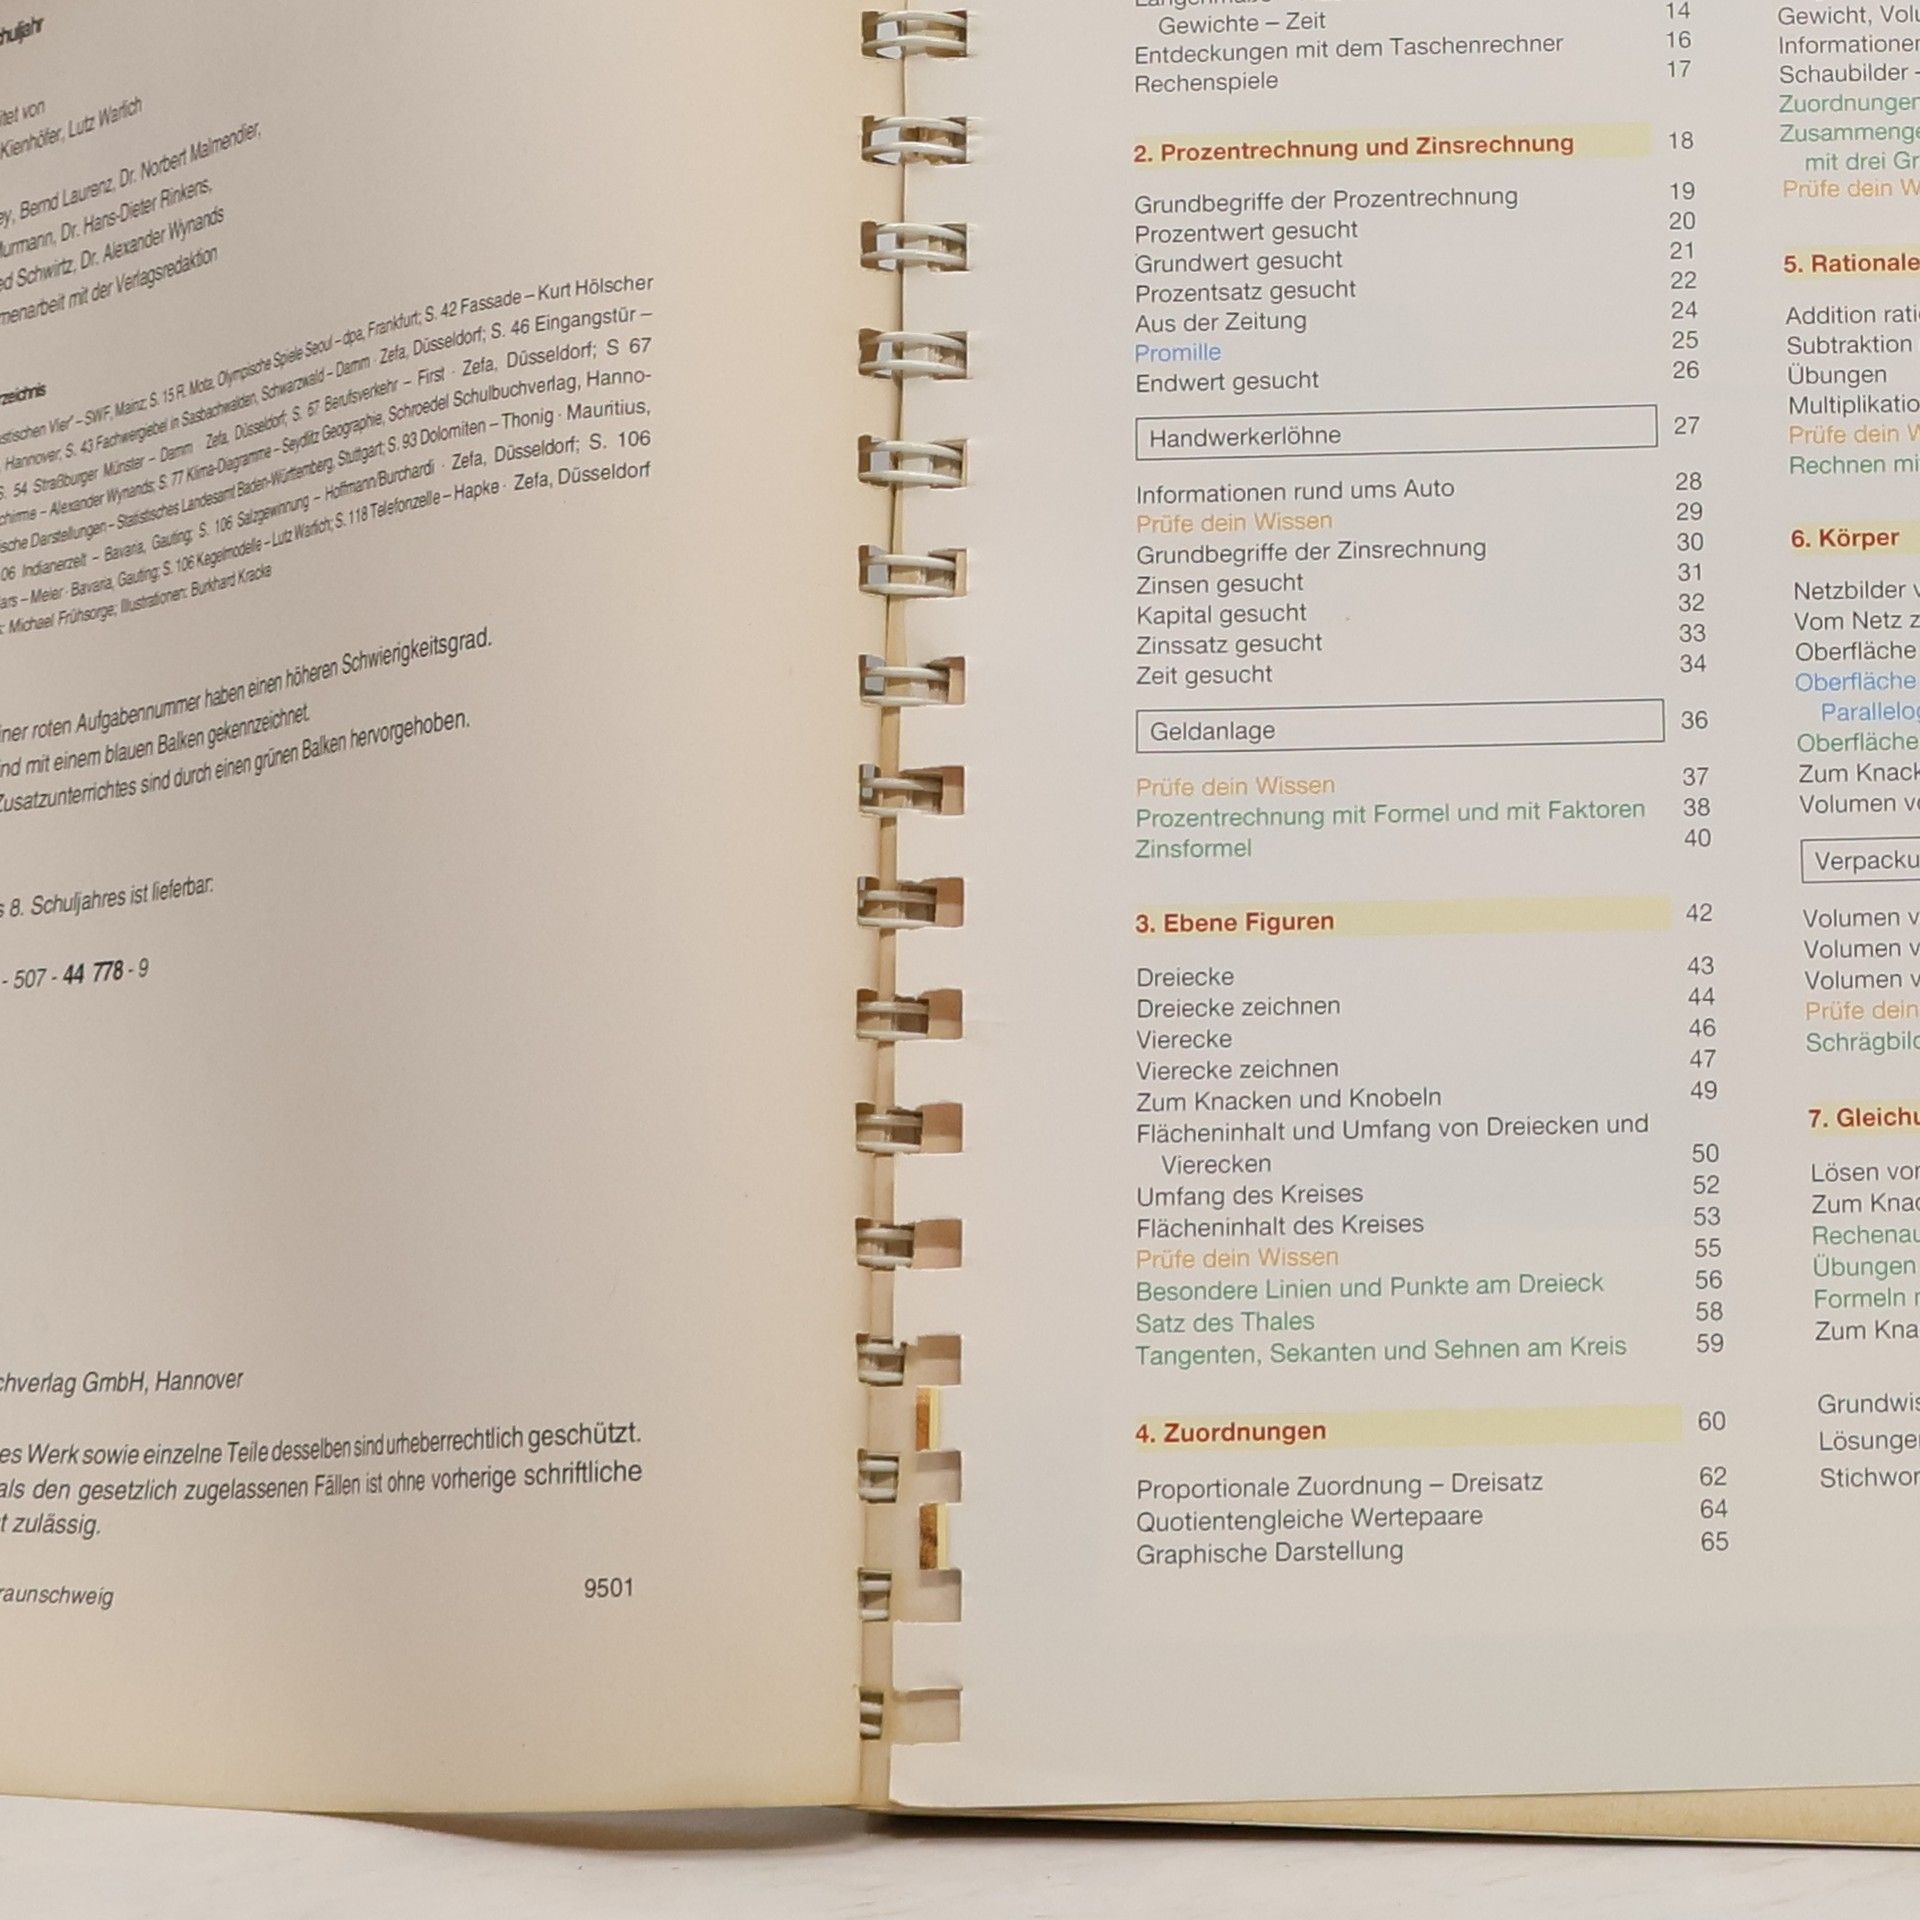 huljahr
itet von
Kienhöfer, Lutz Warlich
ey, Bernd Laurenz, Dr. Norbert Malmendier,
urmann, Dr. Hans-Dieter Rinkens,
ed Schwirtz, Dr. Alexander Wynands
menarbeit mit der Verlagsredaktion
rzeichnis
stischen Vier" – SWF, Mainz; S. 15 R. Mota, Olympische Spiele Seoul – dpa, Frankfurt; S. 42 Fassade – Kurt Hölscher
Hannover; S. 43 Fachwergiebel in Sasbachwalden, Schwarzwald – Damm · Zefa, Düsseldorf; S. 46 Eingangstür –
S. 54 Straßburger Münster – Damm Zefa, Düsseldorf; S. 67 Berufsverkehr – First · Zefa, Düsseldorf; S 67
chirme – Alexander Wynands; S. 77 Klima-Diagramme – Seydlitz Geographie, Schroedel Schulbuchverlag, Hanno-
ische Darstellungen – Statistisches Landesamt Baden-Württemberg, Stuttgart; S. 93 Dolomiten – Thonig · Mauritius,
06 Indianerzelt – Bavaria, Gauting; S. 106 Salzgewinnung – Hoffmann/Burchardi · Zefa, Düsseldorf; S. 106
ars – Meier · Bavaria, Gauting; S. 106 Kegelmodelle – Lutz Warlich; S. 118 Telefonzelle – Hapke · Zefa, Düsseldorf
: Michael Frühsorge; Illustrationen: Burkhard Kracke
iner roten Aufgabennummer haben einen höheren Schwierigkeitsgrad.
ind mit einem blauen Balken gekennzeichnet.
Zusatzunterrichtes sind durch einen grünen Balken hervorgehoben.
s 8. Schuljahres ist lieferbar:
- 507 - 44 778 - 9
chverlag GmbH, Hannover
es Werk sowie einzelne Teile desselben sind urheberrechtlich geschützt.
als den gesetzlich zugelassenen Fällen ist ohne vorherige schriftliche
t zulässig.
raunschweig 9501
Gewichte – Zeit 14
Entdeckungen mit dem Taschenrechner 16
Rechenspiele 17
2. Prozentrechnung und Zinsrechnung 18
Grundbegriffe der Prozentrechnung 19
Prozentwert gesucht 20
Grundwert gesucht 21
Prozentsatz gesucht 22
Aus der Zeitung 24
Promille 25
Endwert gesucht 26
Handwerkerlöhne 27
Informationen rund ums Auto 28
Prüfe dein Wissen 29
Grundbegriffe der Zinsrechnung 30
Zinsen gesucht 31
Kapital gesucht 32
Zinssatz gesucht 33
Zeit gesucht 34
Geldanlage 36
Prüfe dein Wissen 37
Prozentrechnung mit Formel und mit Faktoren 38
Zinsformel 40
3. Ebene Figuren 42
Dreiecke 43
Dreiecke zeichnen 44
Vierecke 46
Vierecke zeichnen 47
Zum Knacken und Knobeln 49
Flächeninhalt und Umfang von Dreiecken und
Vierecken 50
Umfang des Kreises 52
Flächeninhalt des Kreises 53
Prüfe dein Wissen 55
Besondere Linien und Punkte am Dreieck 56
Satz des Thales 58
Tangenten, Sekanten und Sehnen am Kreis 59
4. Zuordnungen 60
Proportionale Zuordnung – Dreisatz 62
Quotientengleiche Wertepaare 64
Graphische Darstellung 65
Gewicht, Volu
Informationen
Schaubilder -
Zuordnungen
Zusammenge
mit drei Gr
Prüfe dein W
5. Rationale
Addition ratio
Subtraktion
Übungen
Multiplikatio
Prüfe dein W
Rechnen mi
6. Körper
Netzbilder v
Vom Netz z
Oberfläche
Oberfläche
Parallelog
Oberfläche
Zum Knack
Volumen vo
Verpacku
Volumen v
Volumen v
Volumen v
Prüfe dein
Schrägbild
7. Gleichu
Lösen von
Zum Knac
Rechenau
Übungen
Formeln
Zum Kna
Grundwis
Lösunge
Stichwor